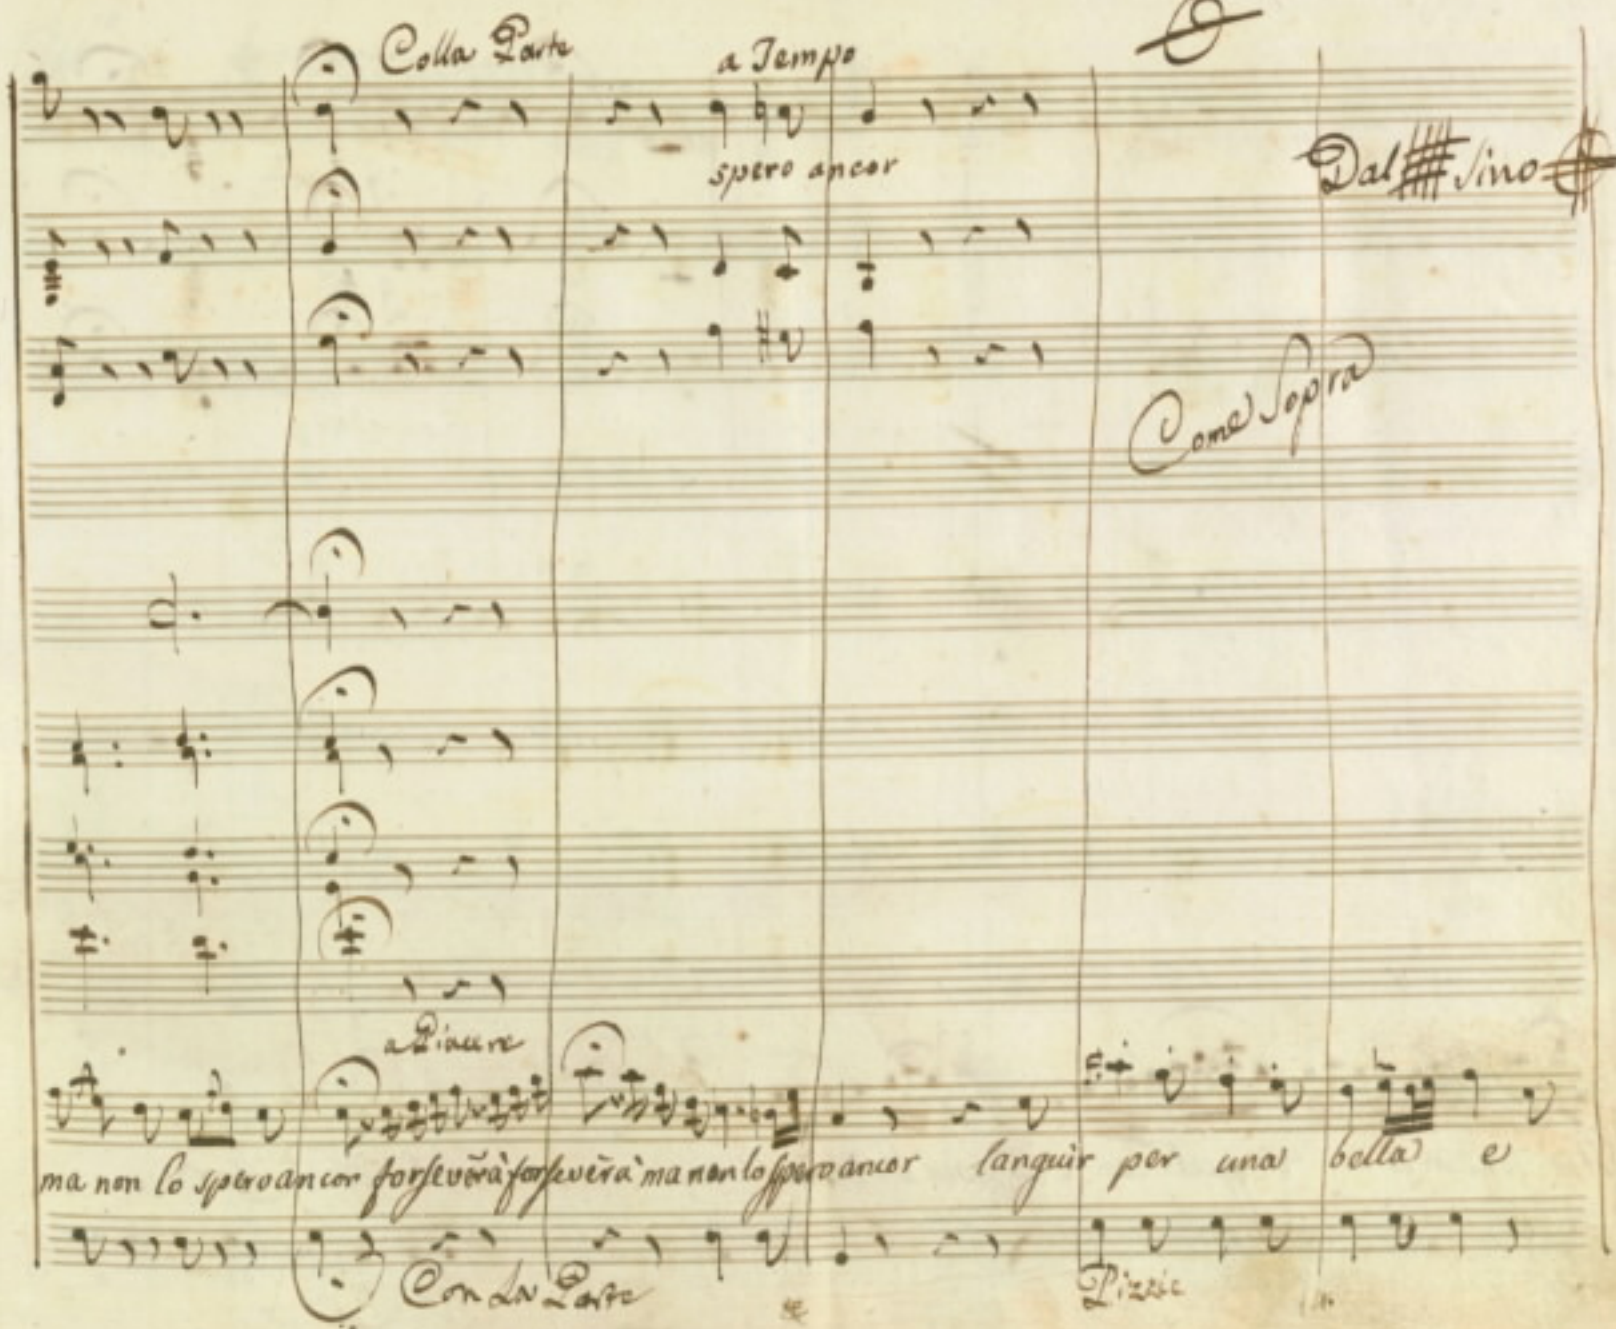 Colla Parte a Tempo
spero ancor
Dal Sino
Come Sopra
a Piacere
ma non lo spero ancor forse verà forse verà ma non lo spero ancor languir per una bella e
Con La Parte Pizzic